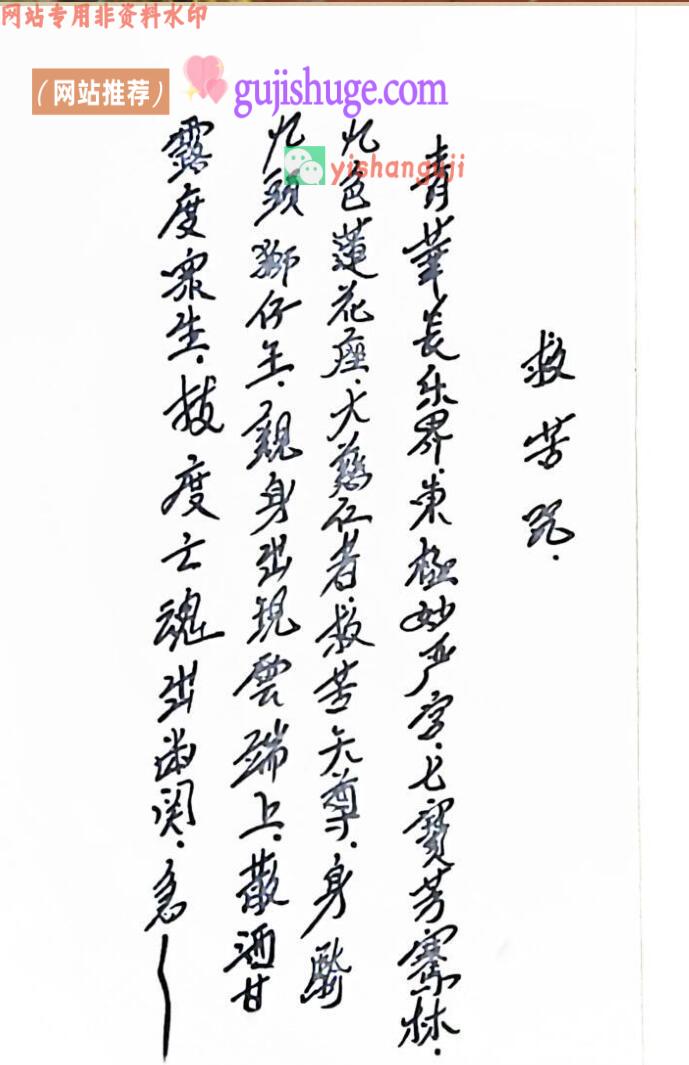 网站专用非资料水印
（网站推荐）
gujishuge.com
yishanguji
救苦咒.
青華長乐界.東極妙严宮.七寶芳騫林.
九色蓮花座.大慈仁者.救苦天尊.身騎
九頭獅仔王.親身出現雲端上.散洒甘
露度眾生.拔度亡魂出幽関.急